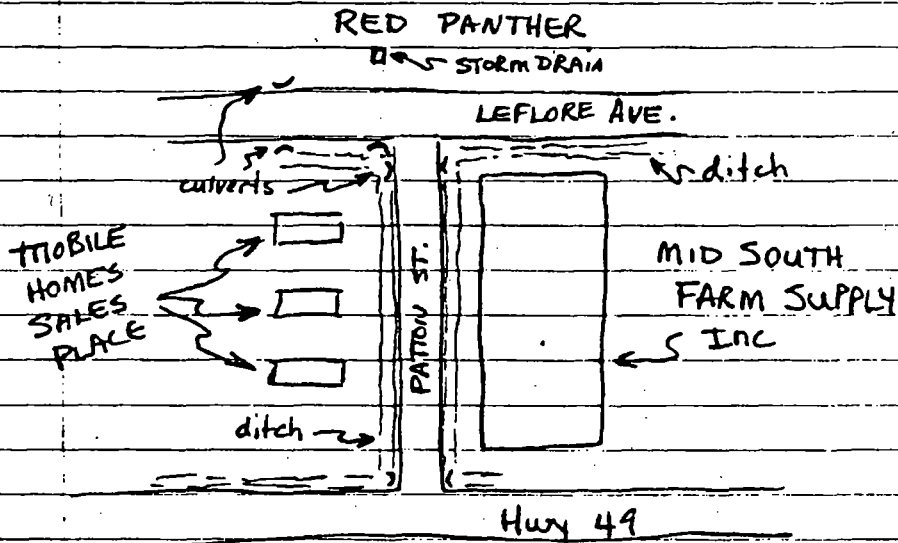 RED PANTHER
STORM DRAIN
LEFLORE AVE.
culverts
ditch
MOBILE
HOMES
SALES
PLACE
PATTON ST.
MID SOUTH
FARM SUPPLY
Inc
ditch
Hwy 49